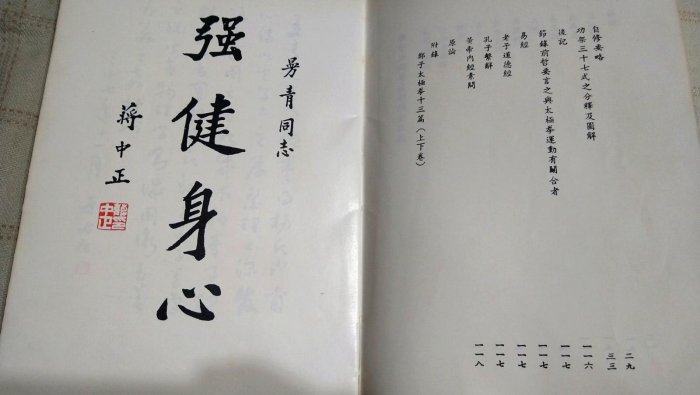 自修要略 二九
功架三十七式之分釋及圖解 三三
後記 一一六
節錄前哲要言之與太極拳運動有關合者 一一七
易經 一一七
老子道德經 一一七
孔子繫辭 一一七
黃帝內經素問 一一八
原論
附錄
鄭子太極拳十三篇（上下卷）
曼青同志
强健身心
蔣中正